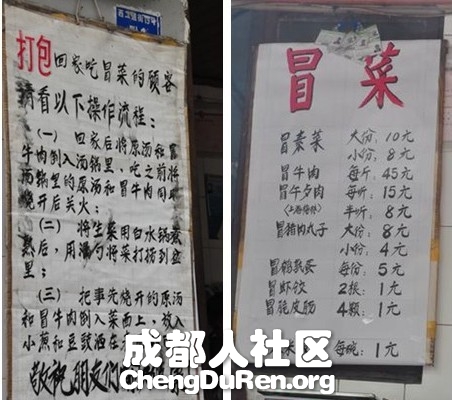 打包回家吃冒菜的顾客
请看以下操作流程：
（一）回家后将原汤和冒
牛肉倒入汤锅里，吃之前将
汤锅里的原汤和冒牛肉同时
烧开后关火；
（二）将生菜用白水锅煮
熟后，用漏勺将菜打捞到盆
里；
（三）把事先烧开的原汤
和冒牛肉倒入菜面上，放入
小葱和豆豉洒在
敬祝朋友们
冒菜
冒素菜 大份：10元
小份：8元
冒牛肉 每斤：45元
冒午夕肉 每听：15元
半听：8元
冒猪肉丸子 大份：8元
小份：4元
冒鹌鹑蛋 每份：5元
冒虾饺 2根：1元
冒毛皮肠 4颗：1元
每碗：1元
成都人社区
ChengDuRen.org